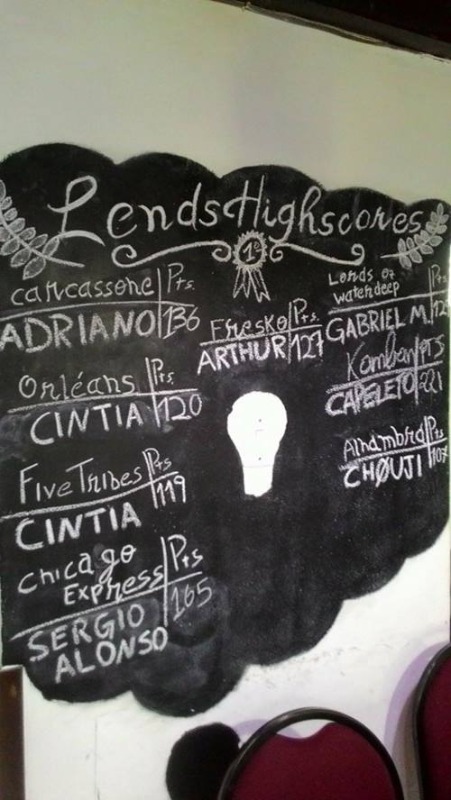 LendsHighscores
1º
carcassone Pts.
ADRIANO 136
Orléans Pts.
CINTIA 120
Five Tribes Pts
CINTIA 119
Chicago
Express Pts
SERGIO 165
ALONSO
Fresko Pts.
ARTHUR 127
Lords of
waterdeep Pts.
GABRIEL M.
Kamban PTS
CAPELETO 221
Alhambra Pts
CHØUJI